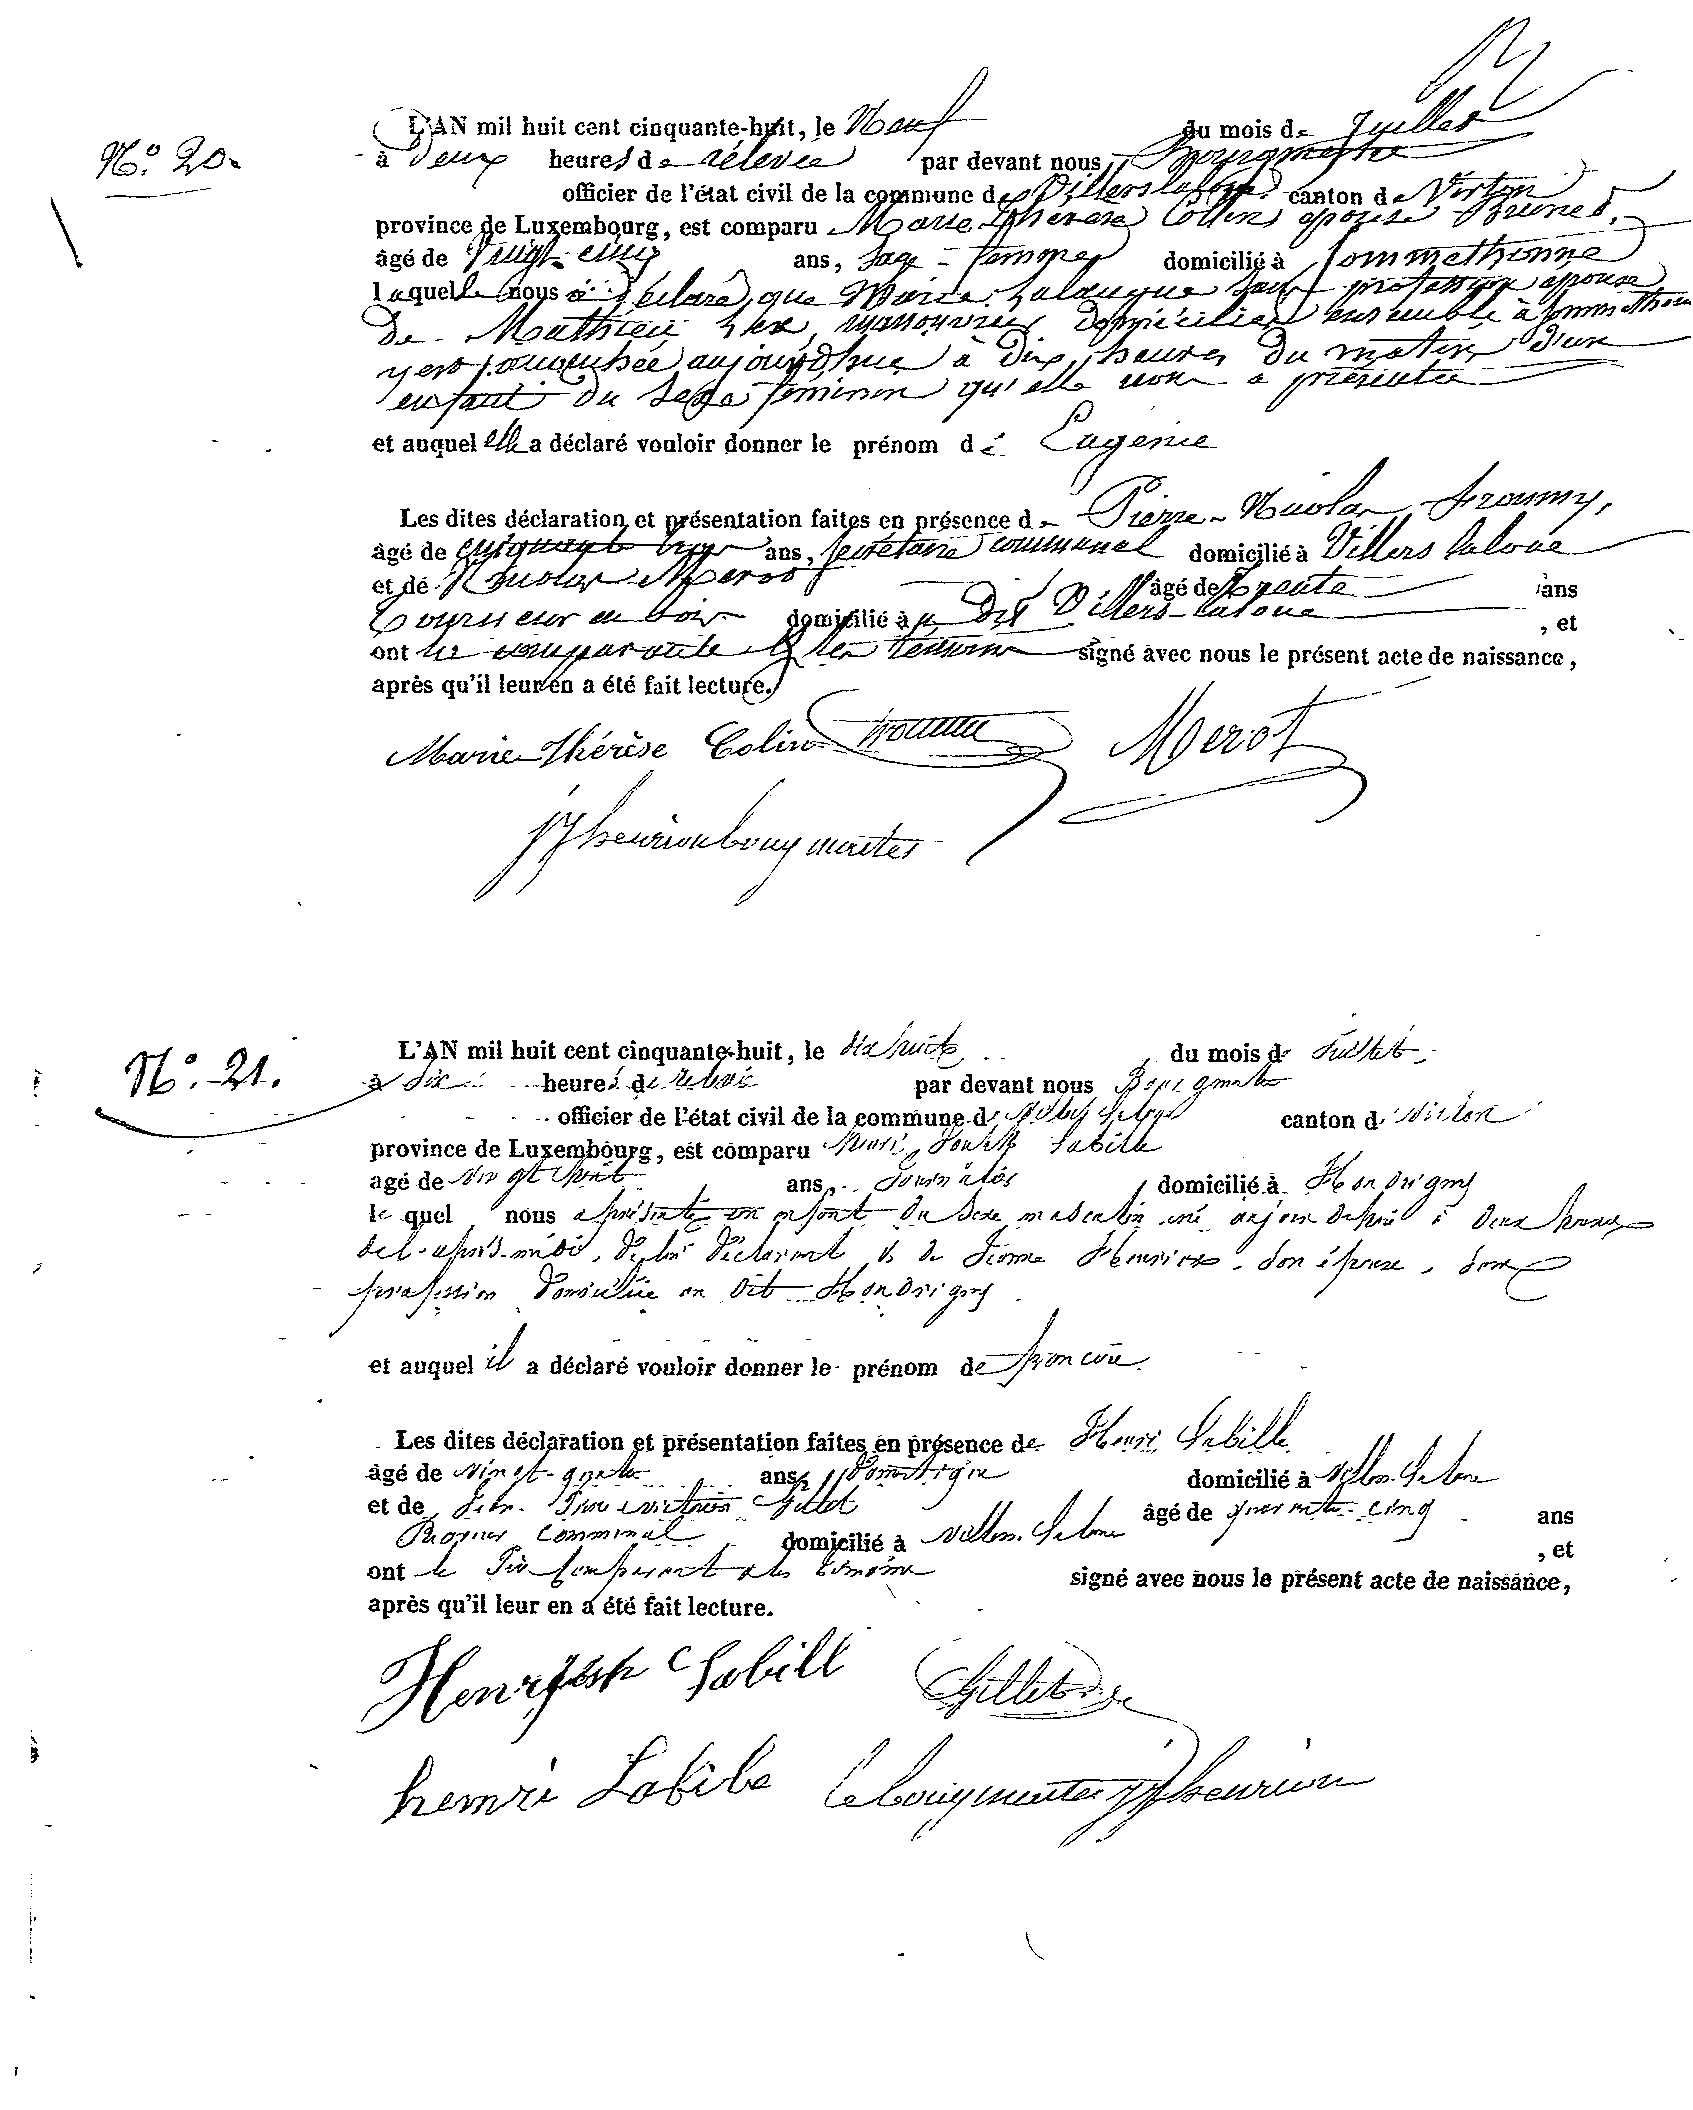 N.° 20.
L'AN mil huit cent cinquante-huit, le Neuf du mois de Juillet
à deux heures de rélevée par devant nous Bourgmestre
officier de l'état civil de la commune de Villerslaloue canton de Virton
province de Luxembourg, est comparu Marie Thérèse Collin épouse
âgé de Vingt-cinq ans, sage-femme domicilié à Sommethonne
laquelle nous a déclaré que Marie sans profession épouse
de Mathieu manouvrier domiciliés ensemble à Sommethonne
accouchée aujourd'hui à dix heures du matin d'un
enfant du sexe féminin qu'elle nous a présentée
et auquel elle a déclaré vouloir donner le prénom de Eugénie
Les dites déclaration et présentation faites en présence de Pierre-Nicolas
âgé de cinquante ans, secrétaire communal domicilié à Villers laloue
et de Nicolas Merot âgé de trente ans
Tourneur en bois domicilié à u dit Villers-laloue , et
ont la comparante et les témoins signé avec nous le présent acte de naissance,
après qu'il leur en a été fait lecture.
Marie Thérèse Colin Merot
N.° 21.
L'AN mil huit cent cinquante-huit, le dix huit du mois de Juillet
à six heures de relevée par devant nous Bourgmestre
officier de l'état civil de la commune de Villers laloue canton de Virton
province de Luxembourg, est comparu Henri Joseph Labille
âgé de vingt huit ans, Journalier domicilié à Hondrigny
le quel nous a présenté un enfant du sexe masculin né à deux heures
de l'après-midi, de lui déclarant et de Henrion, son épouse, sans
profession domiciliée au dit Hondrigny
et auquel il a déclaré vouloir donner le prénom de
Les dites déclaration et présentation faites en présence de Henri Labille
âgé de vingt-quatre ans, Domestique domicilié à Villers-laloue
et de Jean Gillet âgé de quarante-cinq ans
communal domicilié à Villers-laloue , et
ont le dit comparant et les témoins signé avec nous le présent acte de naissance,
après qu'il leur en a été fait lecture.
Labill Gillet
henri Labibe le bourgmestre henrion